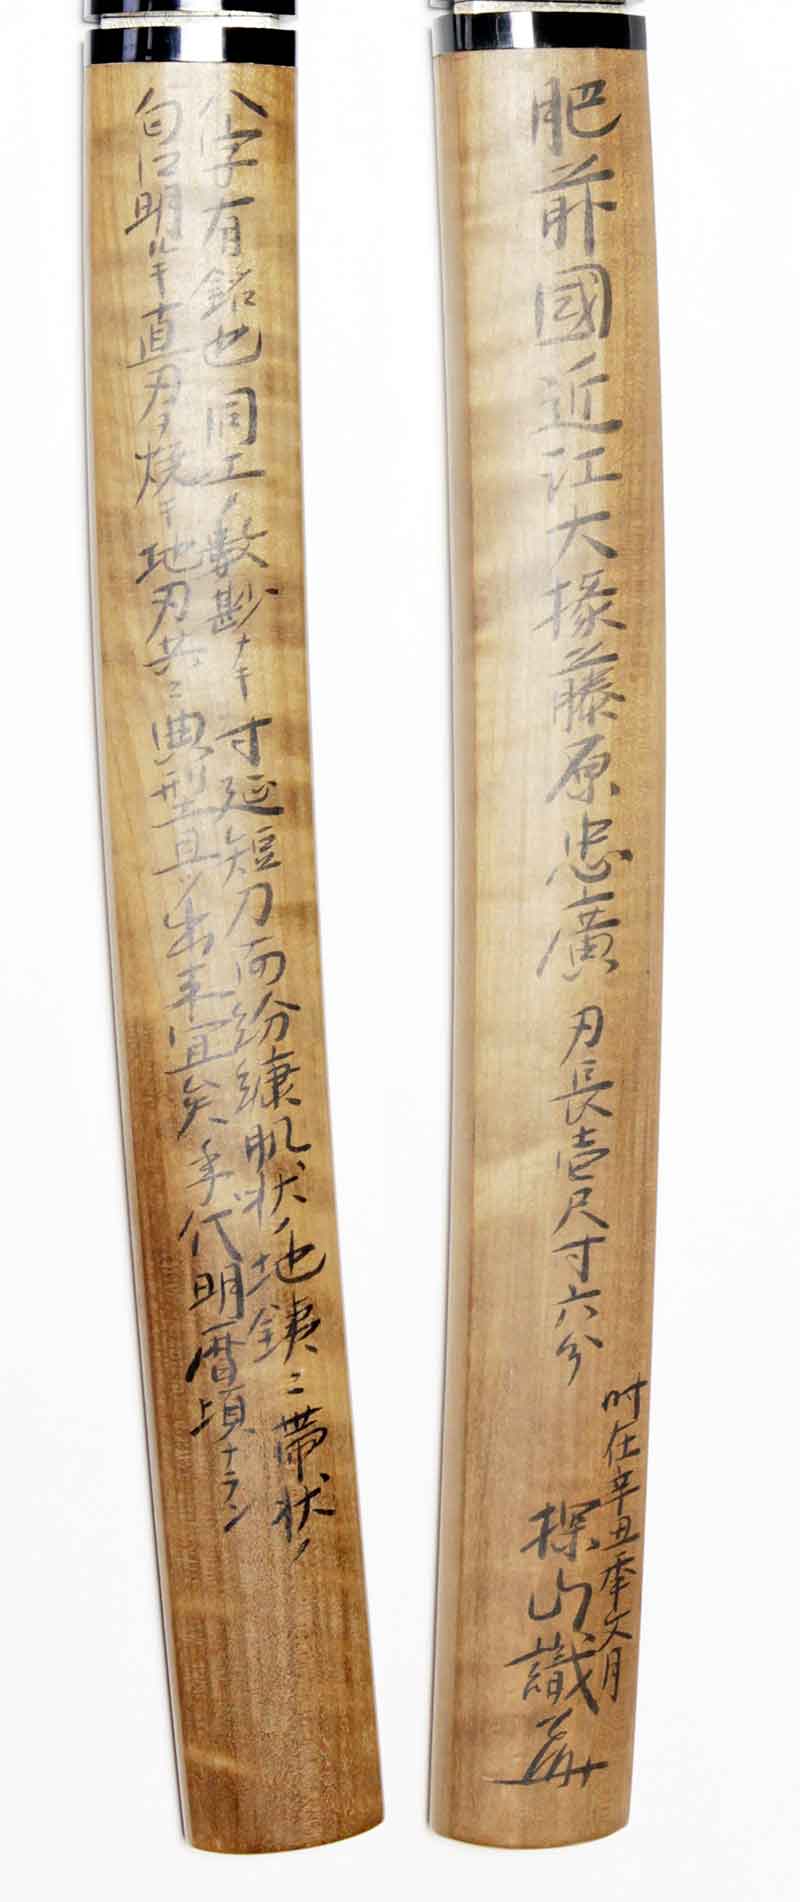 肥前國近江大掾藤原忠廣 刃長壱尺寸六分
時在辛丑年文月
探山識
八字有銘也同工ノ數尠ナキ寸延短刀而粉糠肌状ノ地鉄ニ帯状ノ
匂口明ルキ直刃ヲ焼キ地刃共ニ典型且ツ出来宜矣年代明暦頃ナラン